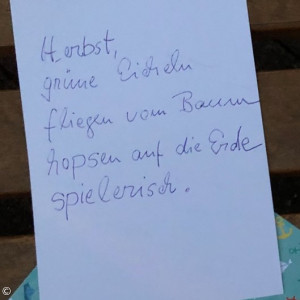 Herbst,
grüne Eicheln
fliegen vom Baum
hopsen auf die Erde
spielerisch.
©